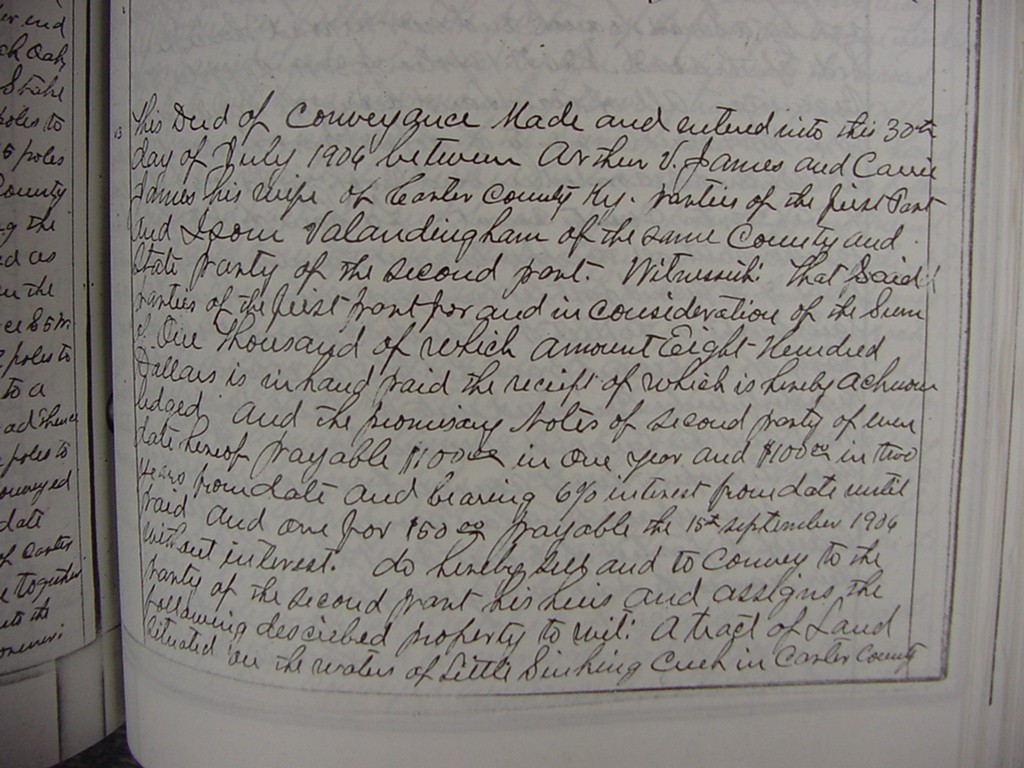 er end
ch Oak
Stake
poles to
5 poles
County
g the
d as
in the
poles to
to a
ad thence
poles to
conveyed
date
of Carter
together
This Deed of Conveyance Made and entered into this 30th
day of July 1906 between Arthur V. James and Carrie
James his wife of Carter County Ky. parties of the first Part
And Isom Valandingham of the same County and
State party of the second part. Witnesseth: That Said
parties of the first part for and in consideration of the Sum
of One Thousand of which amount Eight Hundred
Dollars is in hand paid the receipt of which is hereby acknow
ledged, and the promisary Notes of second party of even
date hereof payable $100.00 in one year and $100.00 in two
years from date and bearing 6% interest from date until
paid and one for $50.00 payable the 15th September 1906
without interest. do hereby sell and to Convey to the
party of the second part his heirs and assigns the
following described property to wit: A tract of Land
situated on the waters of Little Sinking Creek in Carter County